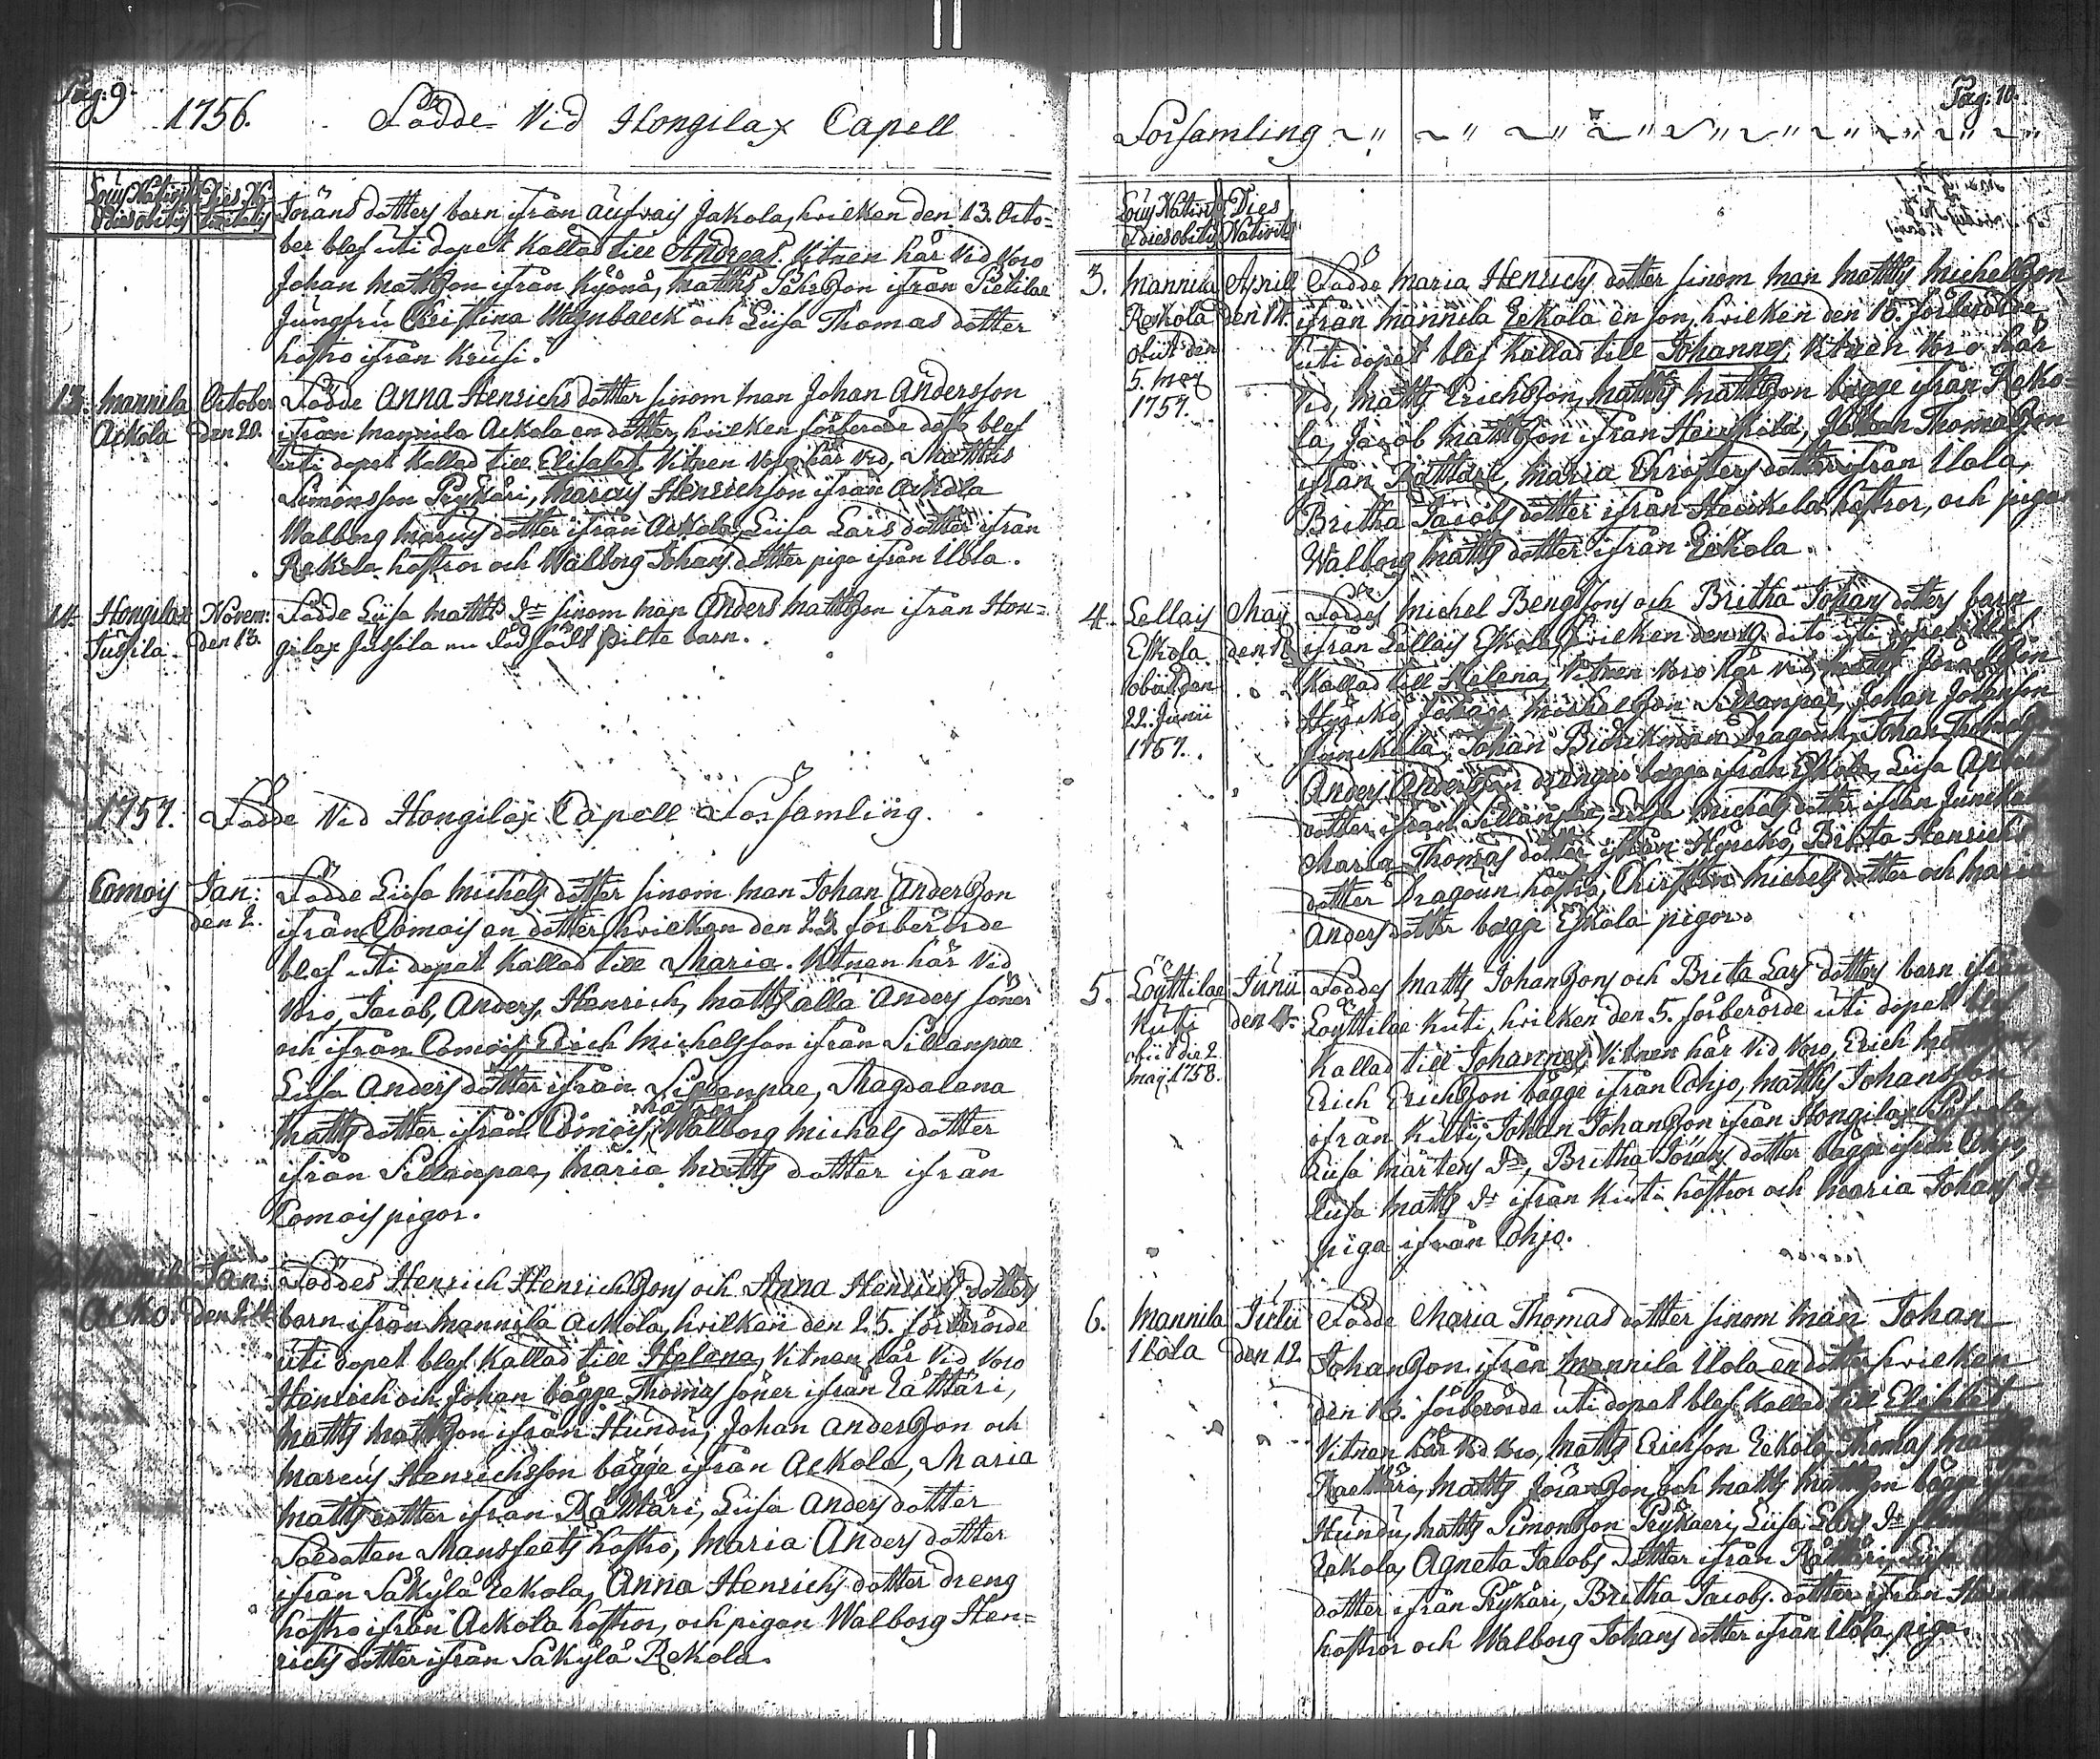 Pag: 9
1756. Födde Vid Hongilax Capell
Locus Nativit: Dies Na
et dies obitus tivitatis
Jöräns dotters barn ifrån aufvais Jakola, hvilken den 13. Octo=
ber blef uti dopet kallad till Andreas. Vitnen här vid Voro
Johan Mattzon ifrån Kyönä, Matths Pehrzon ifrån Pietilae
Jungfru Christina Wegnbaeck och Liisa Thomas dotter
hostro ifrån Krusi.
13. Mannila October Födde Anna Henrichs dotter sinom man Johan Andersson
Ackola den 20. ifrån Mannila Ackola en dotter, hvilken förberörde dato blef
uti dopet kallad till Elisabet. Vitnen Voro här vid, Matths
Simonsson Prykäri, Marcus Henrichson ifrån Ackola
Walborg Marcus dotter ifrån Ackola, Liisa Lars dotter ifrån
Rekola hostror och Walborg Johans dotter piga ifrån Uola.
14. Hongilax Novem: Födde Liisa Matths Dr sinom man Anders Mattzon ifrån Hon=
Jussila den 13. gilax Jussila en död född pilte barn.
1757. Födde Vid Hongilax Capell Församling.
1. Comois Jan: Födde Liisa Michels dotter sinom man Johan Anderzon
den 2. ifrån Comois en dotter, hvilken den 23 förberörde
blef uti dopet kallad till Maria. Vitnen här Vid
Voro, Jacob, Anders, Henrich, Matths alla Anders söner
och ifrån Comois, Erich Michelsson ifrån Sillanpae
Liisa Anders dotter ifrån Sillanpae, Magdalena
Matths dotter ifrån Comois, hostror Walborg Michels dotter
ifrån Sillanpae, Maria Matths dotter ifrån
Comois pigor.
Jan: Föddes Henrich Henrichzons och Anna Henrichs dotters
Acko: den 24. barn ifrån Mannila Ackola, hvilken den 25. förberörde
uti dopet blef kallad till Helena, Vitnen här vid Voro
Henrich och Johan bägge Thomas söner ifrån Rättäri,
Matths Mattzon ifrån Hundu, Johan Anderzon och
Marcus Henrichsson bägge ifrån Ackola, Maria
Matths dotter ifrån Rättäri, Liisa Anders dotter
Soldaten Mansfeets hostro, Maria Anders dotter
ifrån Säkylä Eekola, Anna Henrichs dotter dreng
hostro ifrån Ackola hostror, och pigan Walborg Hen=
richs dotter ifrån Säkylä Rekola.
Pag: 10.
Församling
Locus Nativit: Dies
et dies obitus Nativit:
3. Mannila April Födde Maria Henrichs dotter sinom man Matths Michelzon
Rekola den 14. ifrån Mannila Eekola en son, hvilken den 15. förberörde
obiit den uti dopet blef kallad till Johannes, Vitnen Voro här
5. may Vid, Matths Erichzon, Matths Mattzon bägge ifrån Reko
1757. la, Jacob Mattzon ifrån Heickilä, Johan Thomazon
ifrån Rättäri, Maria Christers dotter ifrån Uola,
Britha Jacobs dotter ifrån Heickilä hostror, och pigan
Walborg Matths dotter ifrån Eekola.
4. Lellais May Föddes Michel Bengtsons och Britha Johans dotters barn
Eskola den 18 ifrån Lellais Eskola, hvilken den 19 dito uti dopet blef
obiit den kallad till Helena, Vitnen Voro här vid, Matths Jöranzon
22. Junii Hyricko, Johan Michelzon Sillanpae, Johan Johanson
1757. Junckala, Johan Dragoun, Johan
Anders Anderzon drengar bägge ifrån Eskola, Liisa
dotter ifrån Sillanpae, Liisa Michels dotter ifrån Juncka
Maria Thomas dotter ifrån Hyricko, Britta Henrichs
dotter Dragoun hostro, Christin Michels dotter och Maria
Anders dotter bägge Eskola pigor.
5. Löyttilae Junii Föddes Matths Johanzons och Brita Lars dotters barn ifrån
Kuti den 4. Löyttilae Kuti, hvilken den 5. förberörde uti dopet blef
obiit die 2 kallad till Johannes, Vitnen här vid Voro, Erich
maij 1758. Erich Erichzon bägge ifrån Cohjo, Matths Johansson
ifrån Kuti, Johan Johanzon ifrån Hongilax
Liisa Mårtens Dr, Britha Jörans dotter bägge ifrån Cohjo,
Liisa Matths Dr ifrån Kuti hostror och Maria Johans Dr
piga ifrån Cohjo.
6. Mannila Julii Födde Maria Thomas dotter sinom man Johan
Uola den 12. Johanzon ifrån Mannila Uola en dotter hvilken
den 13. förberörde uti dopet blef kallad till Elisabet,
Vitnen här vid Voro, Matths Erichson Eekola, Thomas
Raettäri, Matths Jöranzon och Matths Mattzon bägge ifrån
Hundu, Matths Simonzon Prykaeri, Liisa Lars Dr
Eekola, Agneta Jacobs dotter ifrån Rättäri, Liisa
dotter ifrån Prykäri, Britha Jacobs dotter ifrån
hostror och Walborg Johans dotter ifrån Uola piga.